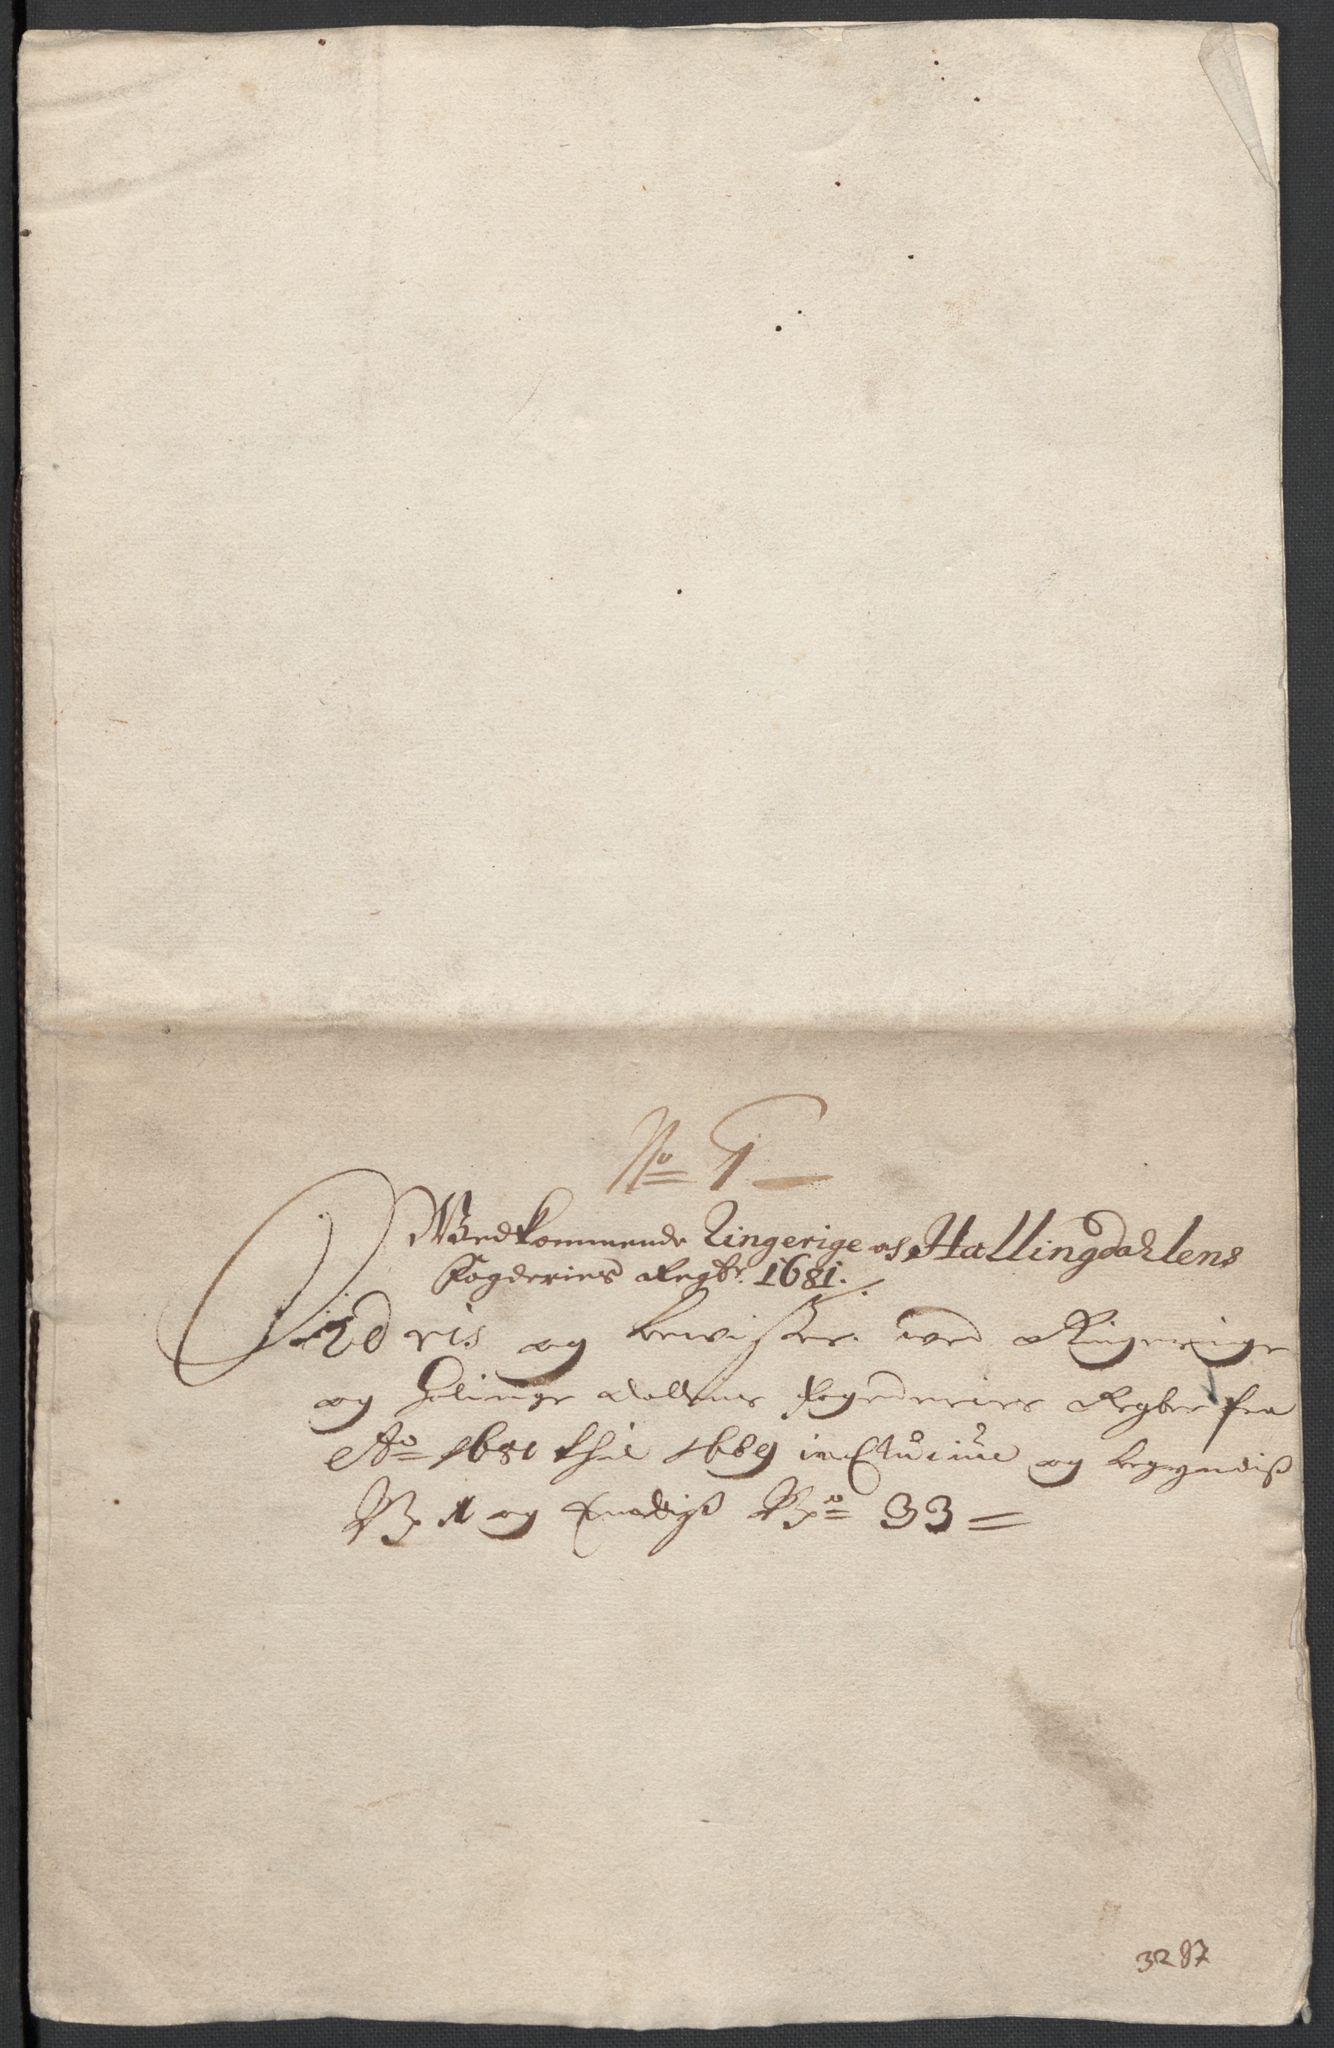 No 1
Wedkommende Ringerige og Hallingdahlens
Fogderies Regbr. 1681.
og beviser ved Ringerige
og Hallinge Dallens Fogederies Regber fra
Ao 1681 thil 1689 inclusive og begyndis
No 1 og Endigis No 33
3287